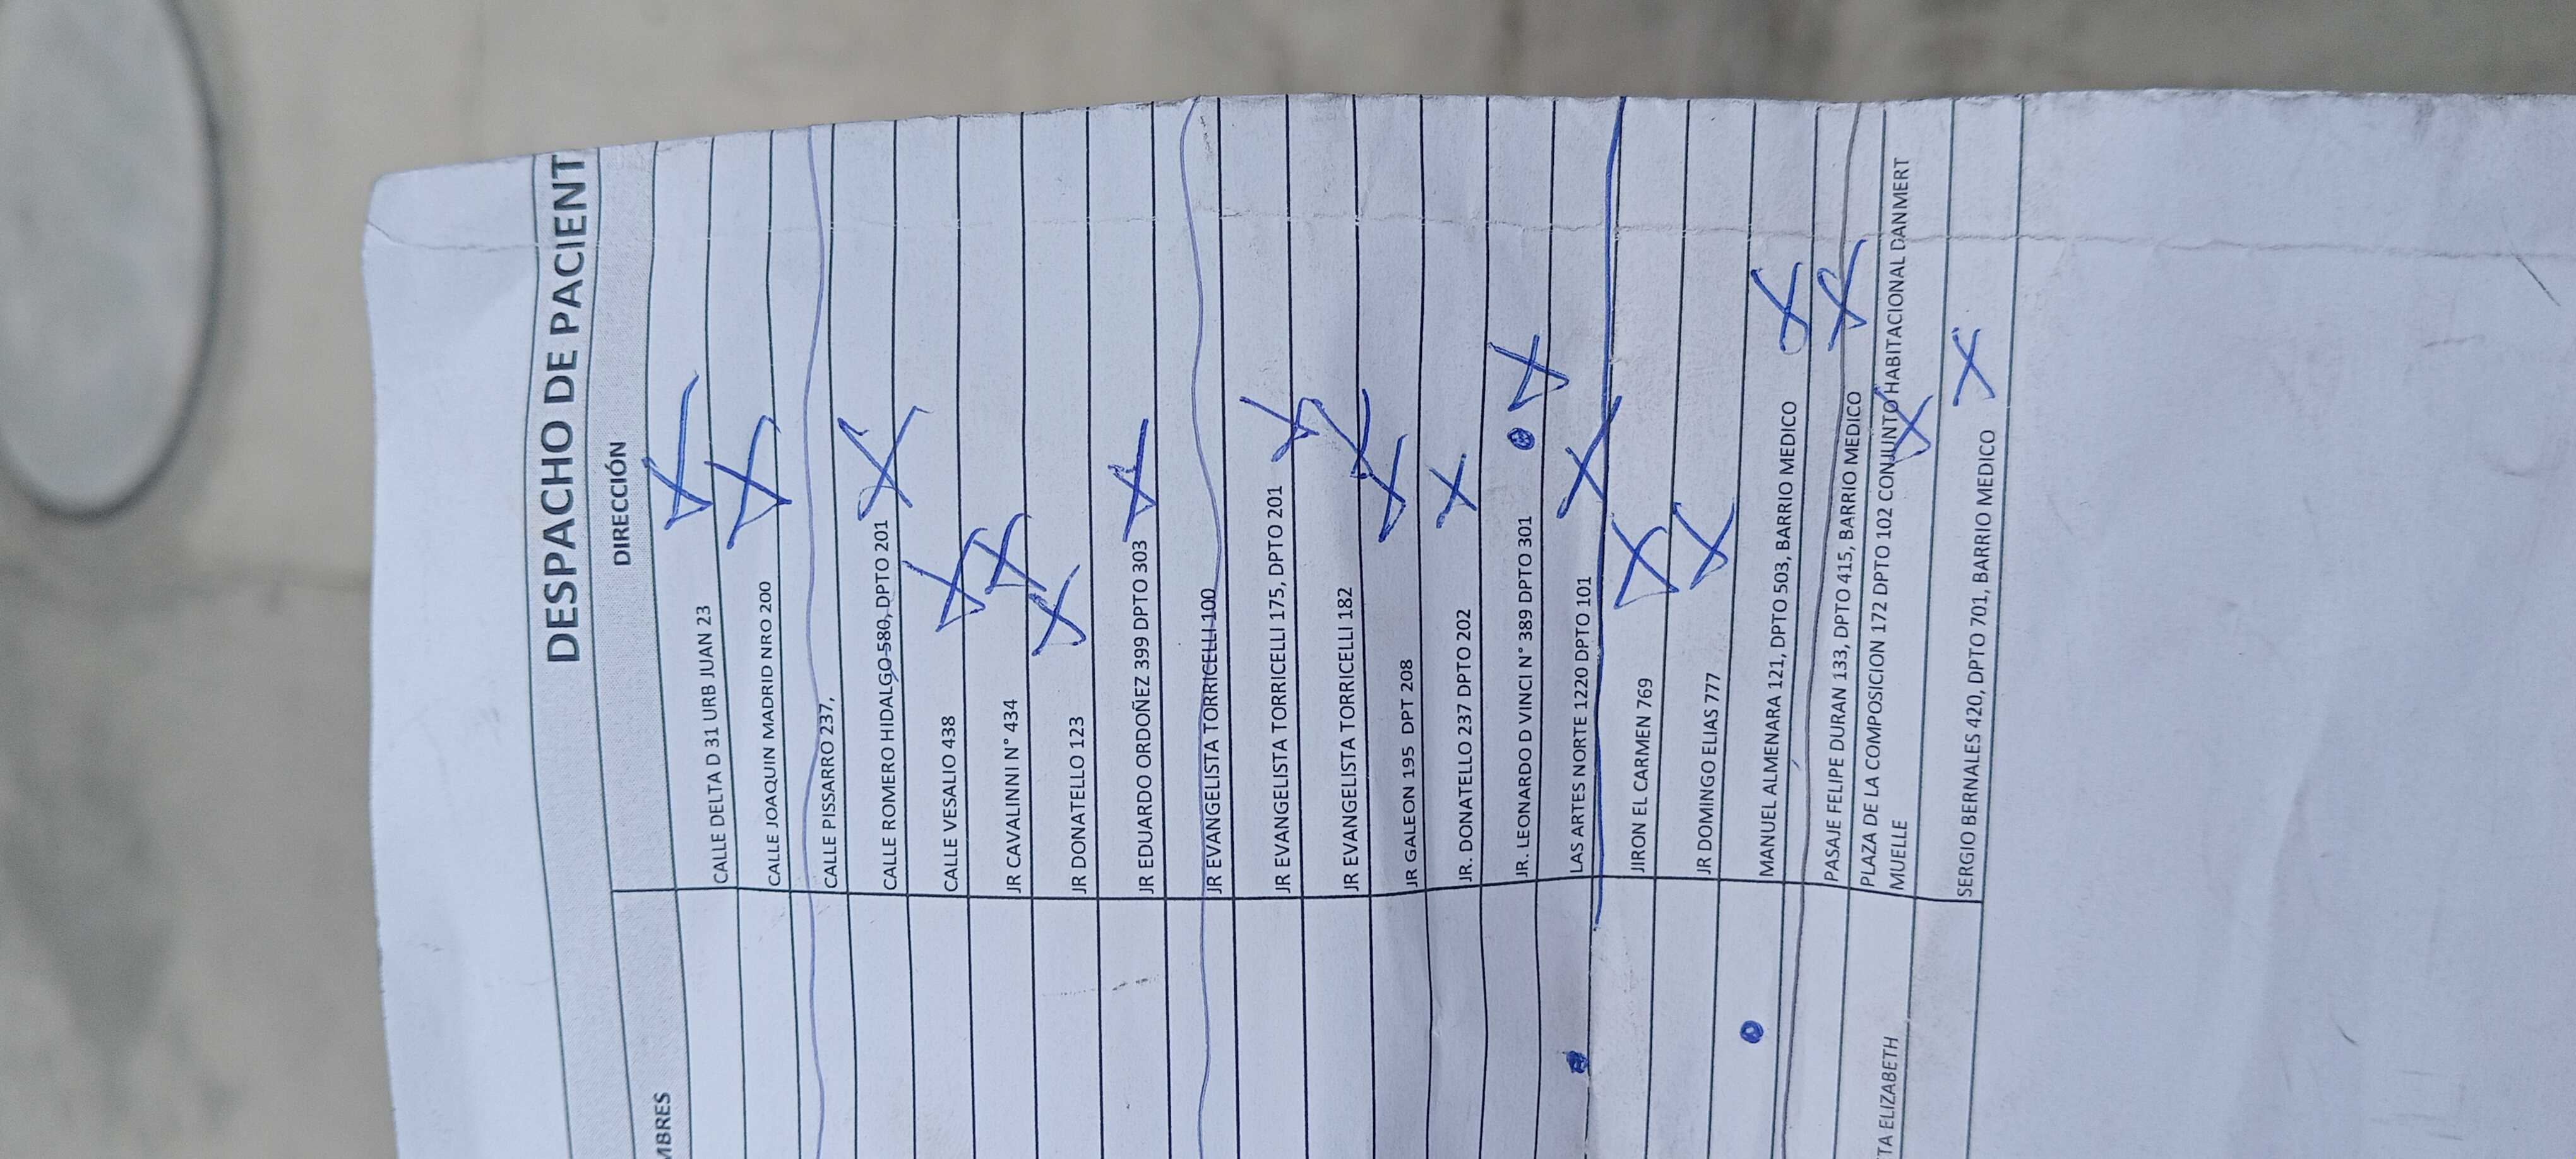 DESPACHO DE PACIENT
MBRES
DIRECCIÓN
CALLE DELTA D 31 URB JUAN 23
CALLE JOAQUIN MADRID NRO 200
CALLE PISSARRO 237,
CALLE ROMERO HIDALGO 580, DPTO 201
CALLE VESALIO 438
JR CAVALINNI N° 434
JR DONATELLO 123
JR EDUARDO ORDOÑEZ 399 DPTO 303
JR EVANGELISTA TORRICELLI 100
JR EVANGELISTA TORRICELLI 175, DPTO 201
JR EVANGELISTA TORRICELLI 182
JR GALEON 195 DPT 208
JR. DONATELLO 237 DPTO 202
JR. LEONARDO D VINCI N° 389 DPTO 301
LAS ARTES NORTE 1220 DPTO 101
JIRON EL CARMEN 769
JR DOMINGO ELIAS 777
MANUEL ALMENARA 121, DPTO 503, BARRIO MEDICO
PASAJE FELIPE DURAN 133, DPTO 415, BARRIO MEDICO
PLAZA DE LA COMPOSICION 172 DPTO 102 CONJUNTO HABITACIONAL DANMERT
MUELLE
TA ELIZABETH
SERGIO BERNALES 420, DPTO 701, BARRIO MEDICO